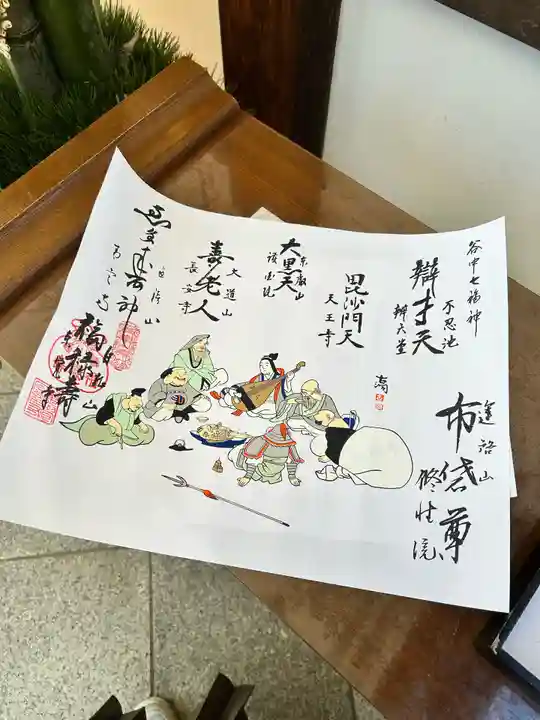 谷中七福神
不忍池
辯才天
辯天堂
毘沙門天
天王寺
東叡山
大黒天
護国院
大道山
壽老人
長安寺
ゑびす神
青雲寺
福禄壽
東覚寺
逢諮山
布袋尊
修性院